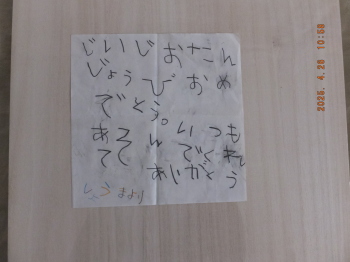 じいじ おたん
じょうび おめ
でとう。
あそん いつも
でく
ありがとう
まより
2025. 4.26 10:58